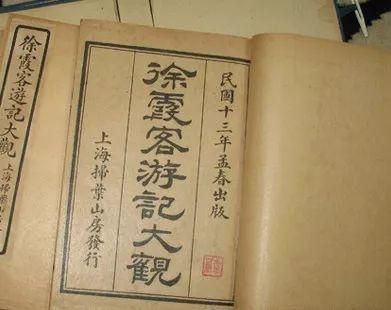 民國十三年孟春出版
徐霞客游記大觀
上海掃葉山房發行
徐霞客遊記大觀
上海掃葉山